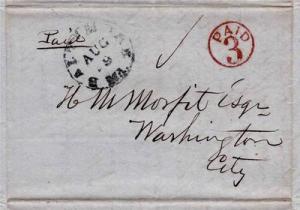 Paid
BALTIMORE Md.
AUG
9
PAID
3
H. M. Morfit Esqr
Washington
City